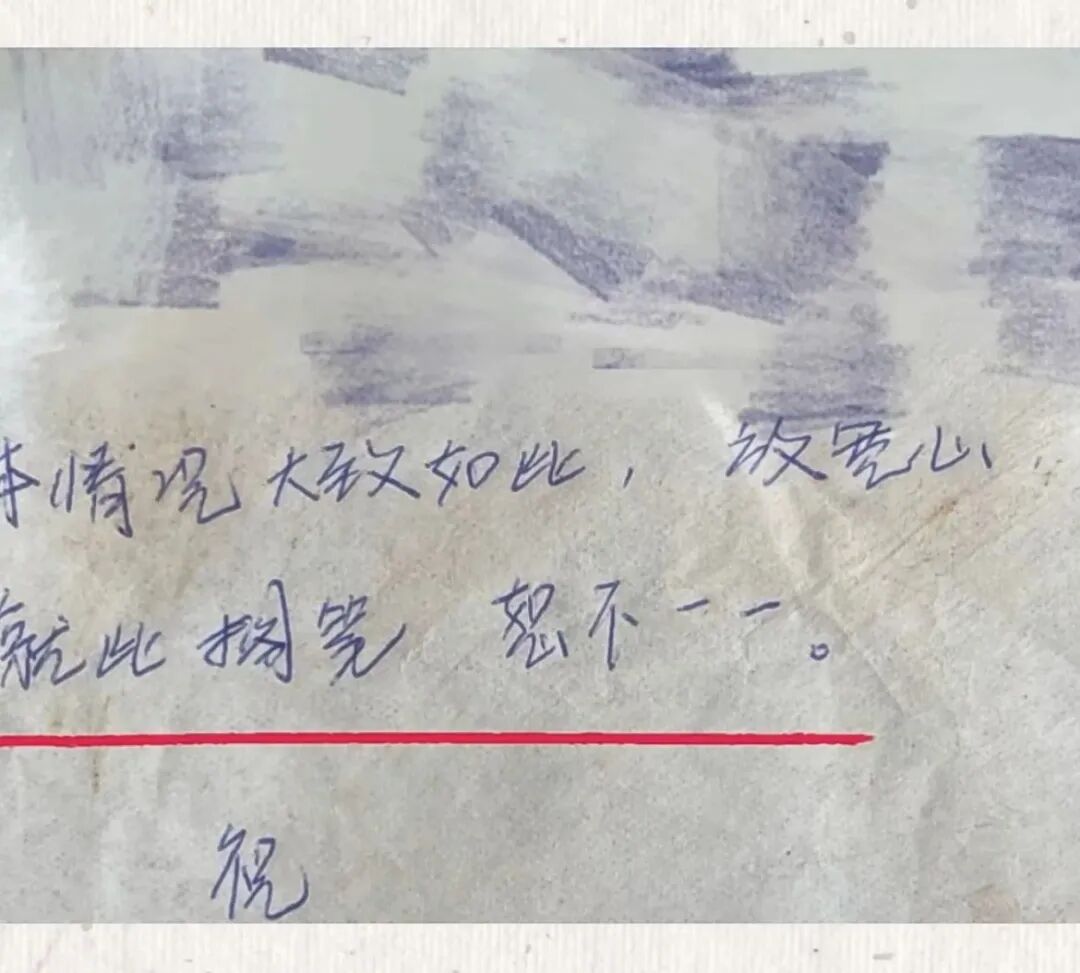 情况大致如此，放宽心、
就此搁笔 恕不一一。
祝